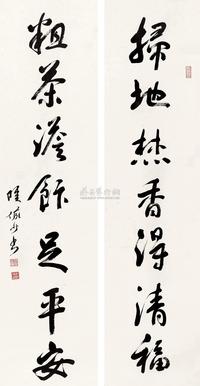 掃地焚香得清福
粗茶淡飯足平安
陸儼少書